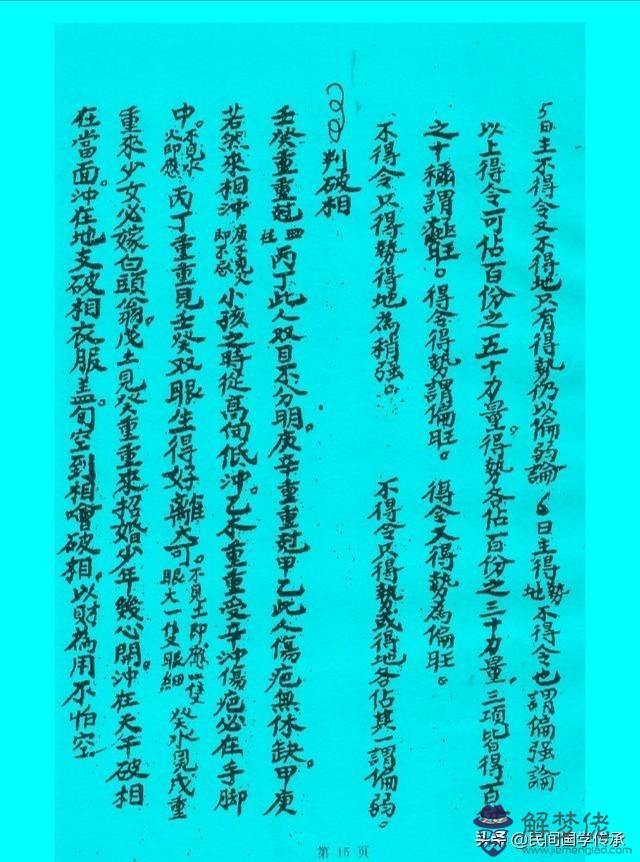 5日主不得令又不得地只有得勢仍以偏弱論。6日主得勢地不得令也謂偏強論
以上得令可佔百份之五十力量。得勢各佔百份之三十力量,三項皆得百
之十稱謂極旺。得令得勢謂偏旺。得令又得勢為偏旺。
不得令只得勢得地為稍強。不得令只得勢或得地各佔其一謂偏弱。
判破相
壬癸重重尅丙丁此人双目不分明。庚辛重重尅甲乙此人傷疤無休缺甲庚
若然來相冲小孩之時從高向低冲。乙木重重受辛冲傷疤必在手脚
中。不見水火即應丙丁重重見壬癸双眼生得好離大可。不見土即應一隻眼大一隻眼細癸水見戊重
重來少女必嫁白頭翁。戊土見癸重重來招婚少年幾心開。冲在天干破相
在當面。冲在地支破相衣服盖旬空到相噲破相,以財為用不怕空
第 15 页
头条 @民间国学传承
解梦佬
www.jiemenglao.com